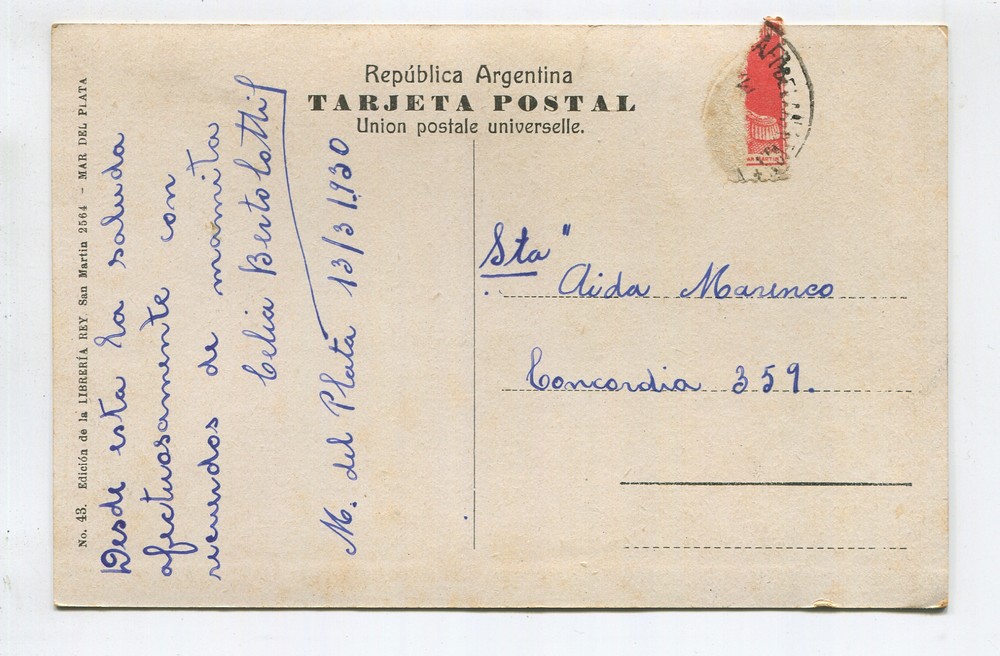 República Argentina
TARJETA POSTAL
Union postale universelle.
No. 43. Edición de la LIBRERÍA REY San Martin 2564 - MAR DEL PLATA
Desde esta la saluda
afectuosamente con
recuerdos de mamita
Celia Bertolotti
M. del Plata 13/3/1930
Sta"
Aida Marenco
Concordia 359.